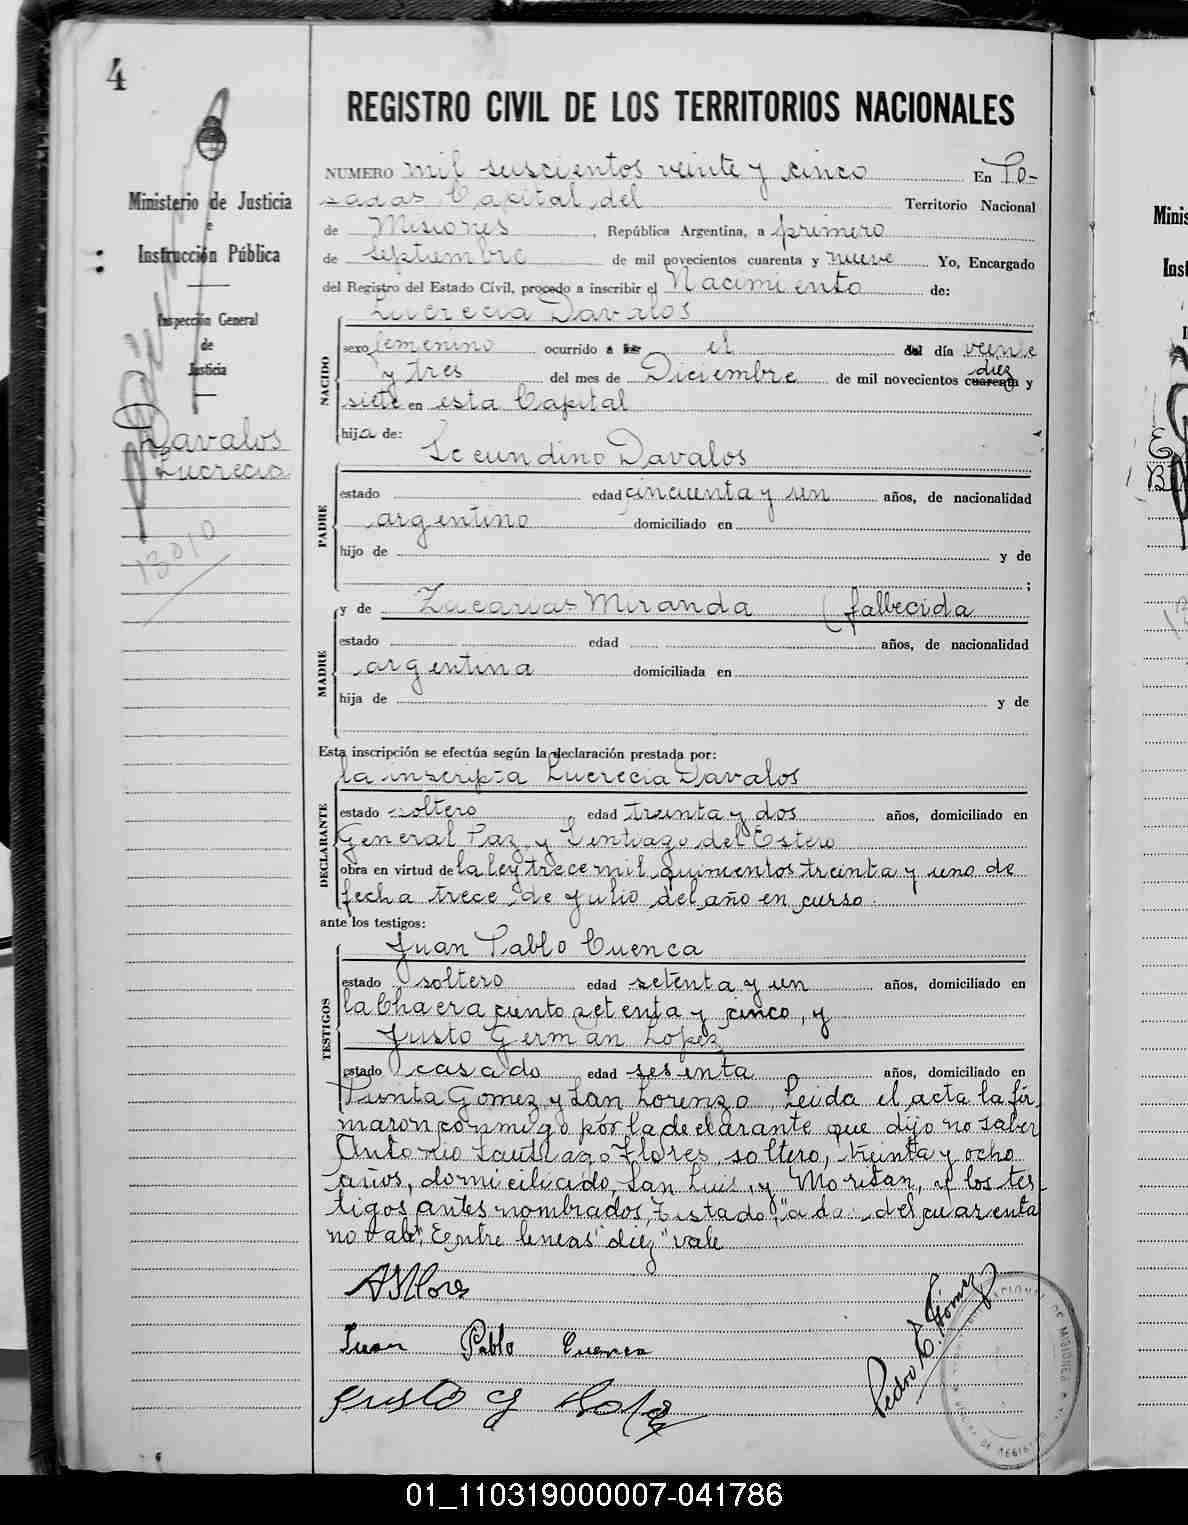 4
REGISTRO CIVIL DE LOS TERRITORIOS NACIONALES
Ministerio de Justicia
e
Instrucción Pública
Inspección General
de
Justicia
Davalos
Lucrecia
13010
NUMERO mil seiscientos veinte y cinco En Po-
sadas Capital del Territorio Nacional
de Misiones, República Argentina, a primero
de septiembre de mil novecientos cuarenta y nueve Yo, Encargado
del Registro del Estado Civil, procedo a inscribir el Nacimiento de:
Lucrecia Davalos
NACIDO
sexo femenino ocurrido a el del día veinte
y tres del mes de Diciembre de mil novecientos cuarenta diez y
siete en esta Capital
hija de:
Secundino Davalos
PADRE
estado edad cincuenta y un años, de nacionalidad
argentino domiciliado en
hijo de y de
;
y de Zacarias Miranda (fallecida
MADRE
estado edad años, de nacionalidad
argentina domiciliada en
hija de y de
Esta inscripción se efectúa según la declaración prestada por:
la inscripta Lucrecia Davalos
DECLARANTE
estado soltero edad treinta y dos años, domiciliado en
General Paz y Santiago del Estero
obra en virtud de la ley trece mil quinientos treinta y uno de
fecha trece de Julio del año en curso.
ante los testigos:
Juan Pablo Cuenca
TESTIGOS
estado soltero edad setenta y un años, domiciliado en
la Chacra ciento setenta y cinco, y
Justo German Lopez
estado casado edad sesenta años, domiciliado en
Punta Gomez y San Lorenzo. Leida el acta la fir
maron conmigo por la declarante que dijo no saber
Antonio Santiago Flores, soltero, treinta y ocho
años, domiciliado San Luis, y Moritan, y los tes-
tigos antes nombrados, Testado: "a del cuarenta
no vale", Entre lineas "diez" vale
ASFlores
Juan Pablo Cuenca
Justo G Lopez
Pedro A. Gómez
NACIONAL DE MISIONES
01_110319000007-041786